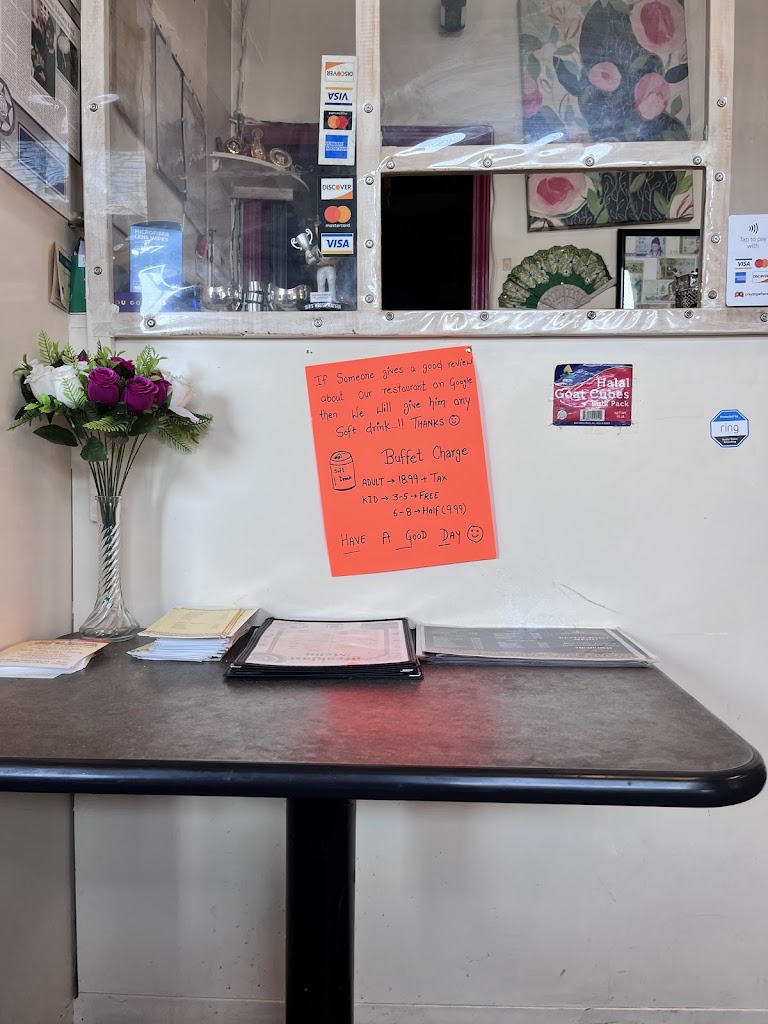 DISCOVER
VISA
mastercard
DISCOVER
mastercard
VISA
MICROFIBER
LENS WIPES
Tap to pay
with
VISA
If Someone gives a good review
about Our restaurant on Google
then We Will give him any
Soft drink..!! THANKS ☺
Soft
Drink
Buffet Charge
ADULT → 18.99 + TAX
KID → 3-5 → FREE
6-8 → Half (9.99)
HAVE A GOOD DAY ☺
Halal
Goat Cubes
Bulk Pack
ring
Breakfast
Menu